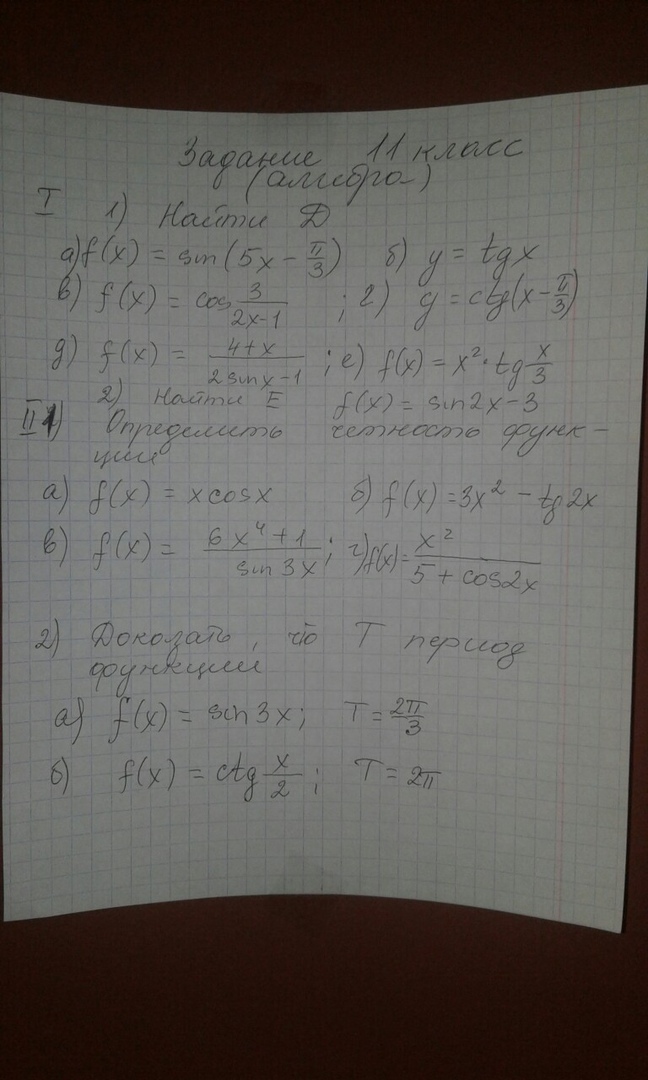 Задание 11 класс
(алгебра)
I 1) Найти D
а) f(x) = sin(5x - π/3) б) y = tgx
в) f(x) = cos 3/(2x-1) ; г) y = ctg(x - π/3)
д) f(x) = (4+x)/(2sinx-1) ; е) f(x) = x²·tg x/3
2) Найти E f(x) = sin2x-3
II 1) Определить четность функ-
ции
а) f(x) = xcosx б) f(x) = 3x² - tg2x
в) f(x) = (6x⁴+1)/(sin3x) ; г) f(x) = x²/(5+cos2x)
2) Доказать, что T период
функции
а) f(x) = sin3x; T = 2π/3
б) f(x) = ctg x/2 ; T = 2π